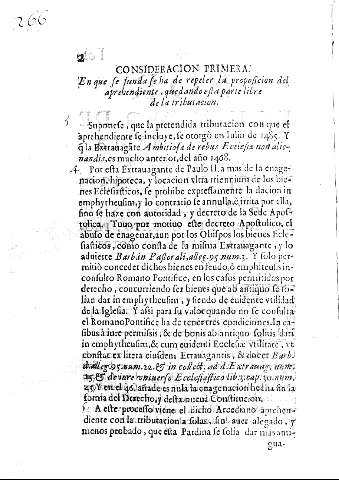 266
2
CONSIDERACION PRIMERA.
En que se funda se ha de repeler la proposicion del
aprehendiente, quedando esta parte libre
de la tributacion.
Suponese, que la pretendida tributacion con que el
aprehendiente se incluye, se otorgò en Iulio de 1485. Y
q̃ la Extrauagãte Ambitiosæ de rebus Ecclesiæ non alie-
nandis, es mucho anterior, del año 1468.
4. Por esta Extrauagante de Paulo II. a mas de la enage-
nacion, hipoteca, y locacion vltra triennium de los bie-
nes Eclesiasticos, se prohibe expressamente la dacion in
emphyteusim, y lo contrario se annulla, è irrita por ella,
sino se haze con autoridad, y decreto de la Sede Apos-
tolica. Tuuo por motiuo este decreto Apostolico, el
abuso de enagenar, aun por los Obispos los bienes Ecle-
siasticos, como consta de la misma Extrauagante, y lo
aduierte Barbos. Pastorali, alleg. 95. num. 3. Y solo per-
mitiò conceder dichos bienes en feudo, ò emphiteusi in-
consulto Romano Pontifice, en los casos permitidos por
derecho, concurriendo ser bienes que ab antiquo se so-
lian dar in emphyteusim, y siendo de euidente vtilidad
de la Iglesia. Y assi para su valor quando no se consulta
el Romano Pontifice ha de tener tres condiciones. In ca-
sibus à iure permissis, & de bonis ab antiquo solitis dari
in emphyteusim, & cum euidenti Ecclesiæ vtilitate, vt
constat ex litera eiusdem Extrauagantis, & docet Barb.
d. alleg. 95. num. 22. & in collect. ad d. Extrauag. num.
25. & de iure vniuerso Ecclesiastico lib. 3. cap. 30. num.
25. Y en el 46. añade es nula la enagenacion hecha sin la
forma del Derecho, y desta nueua Constitucion.
A este processo viene el dicho Arcediano aprehen-
diente con la tributacion a solas, sin auer alegado, y
menos probado, que esta Pardina se solia dar mas anti-
gua-